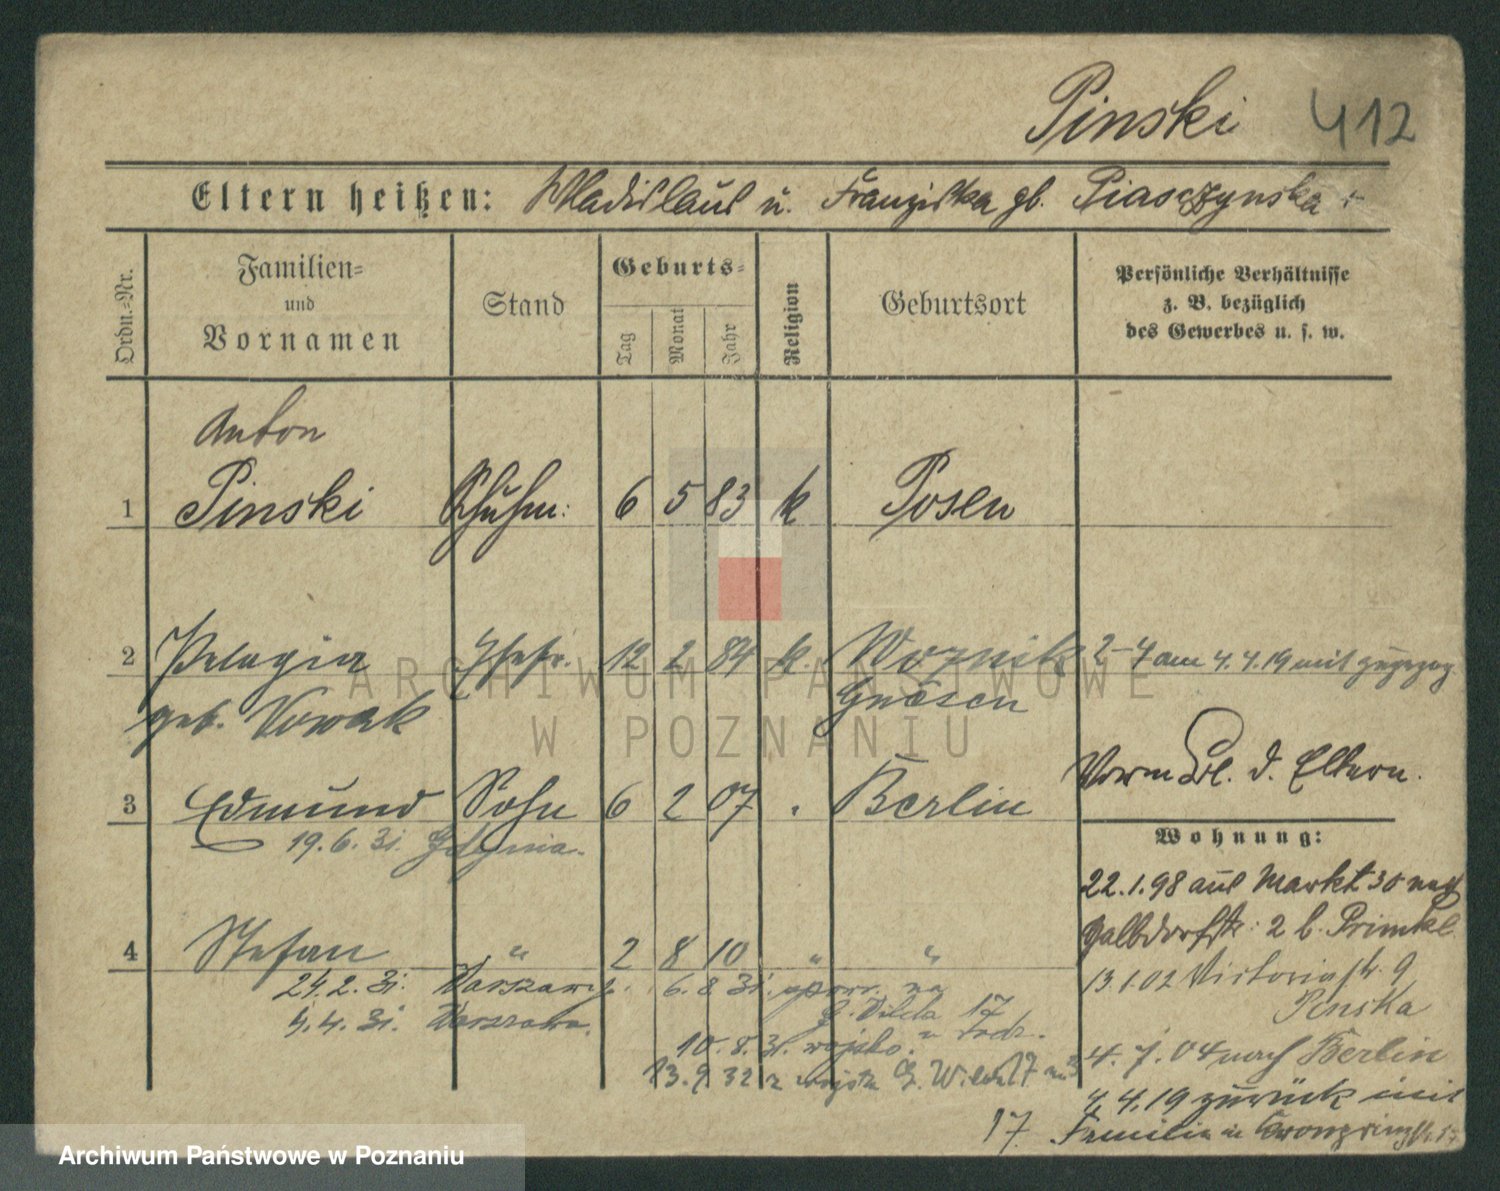 Pinski 412
Eltern heißen: Wladislaus u. Franziska gb. Piasczynska +
Ordn.-Nr.
Familien-
und
Vornamen
Stand
Geburts-
Tag
Monat
Jahr
Religion
Geburtsort
Persönliche Verhältnisse
z. B. bezüglich
des Gewerbes u. s. w.
Anton
1 Pinski Schuhm: 6 5 83 k Posen
2 Pelagia Ehefr. 12 2 84 k. Woznik 2-4 am 4.4.19 mit zugezog.
geb. Nowak Gnesen
Vorm. d. Eltern.
3 Edmund Sohn 6 2 07 " Berlin
19.6.31. Gdynia.
Wohnung:
22.1.98 aus Markt 30 nach
Halbdorfstr. 2 b.
4 Stefan " 2 8 10 " "
13.1.02 Victoriastr. 9
Pinska
24.2.31. Warszawy. 6.8.31. na
G. Wilda 17
4.4.31. Warszawa.
10.8.31. wojsko.
4.7.04 nach Berlin
13.9.32 z wojska G. Wilda 17
4.4.19 zurück mit
17. Familie in Kronprinzstr. 17
ARCHIWUM PAŃSTWOWE
W POZNANIU
Archiwum Państwowe w Poznaniu